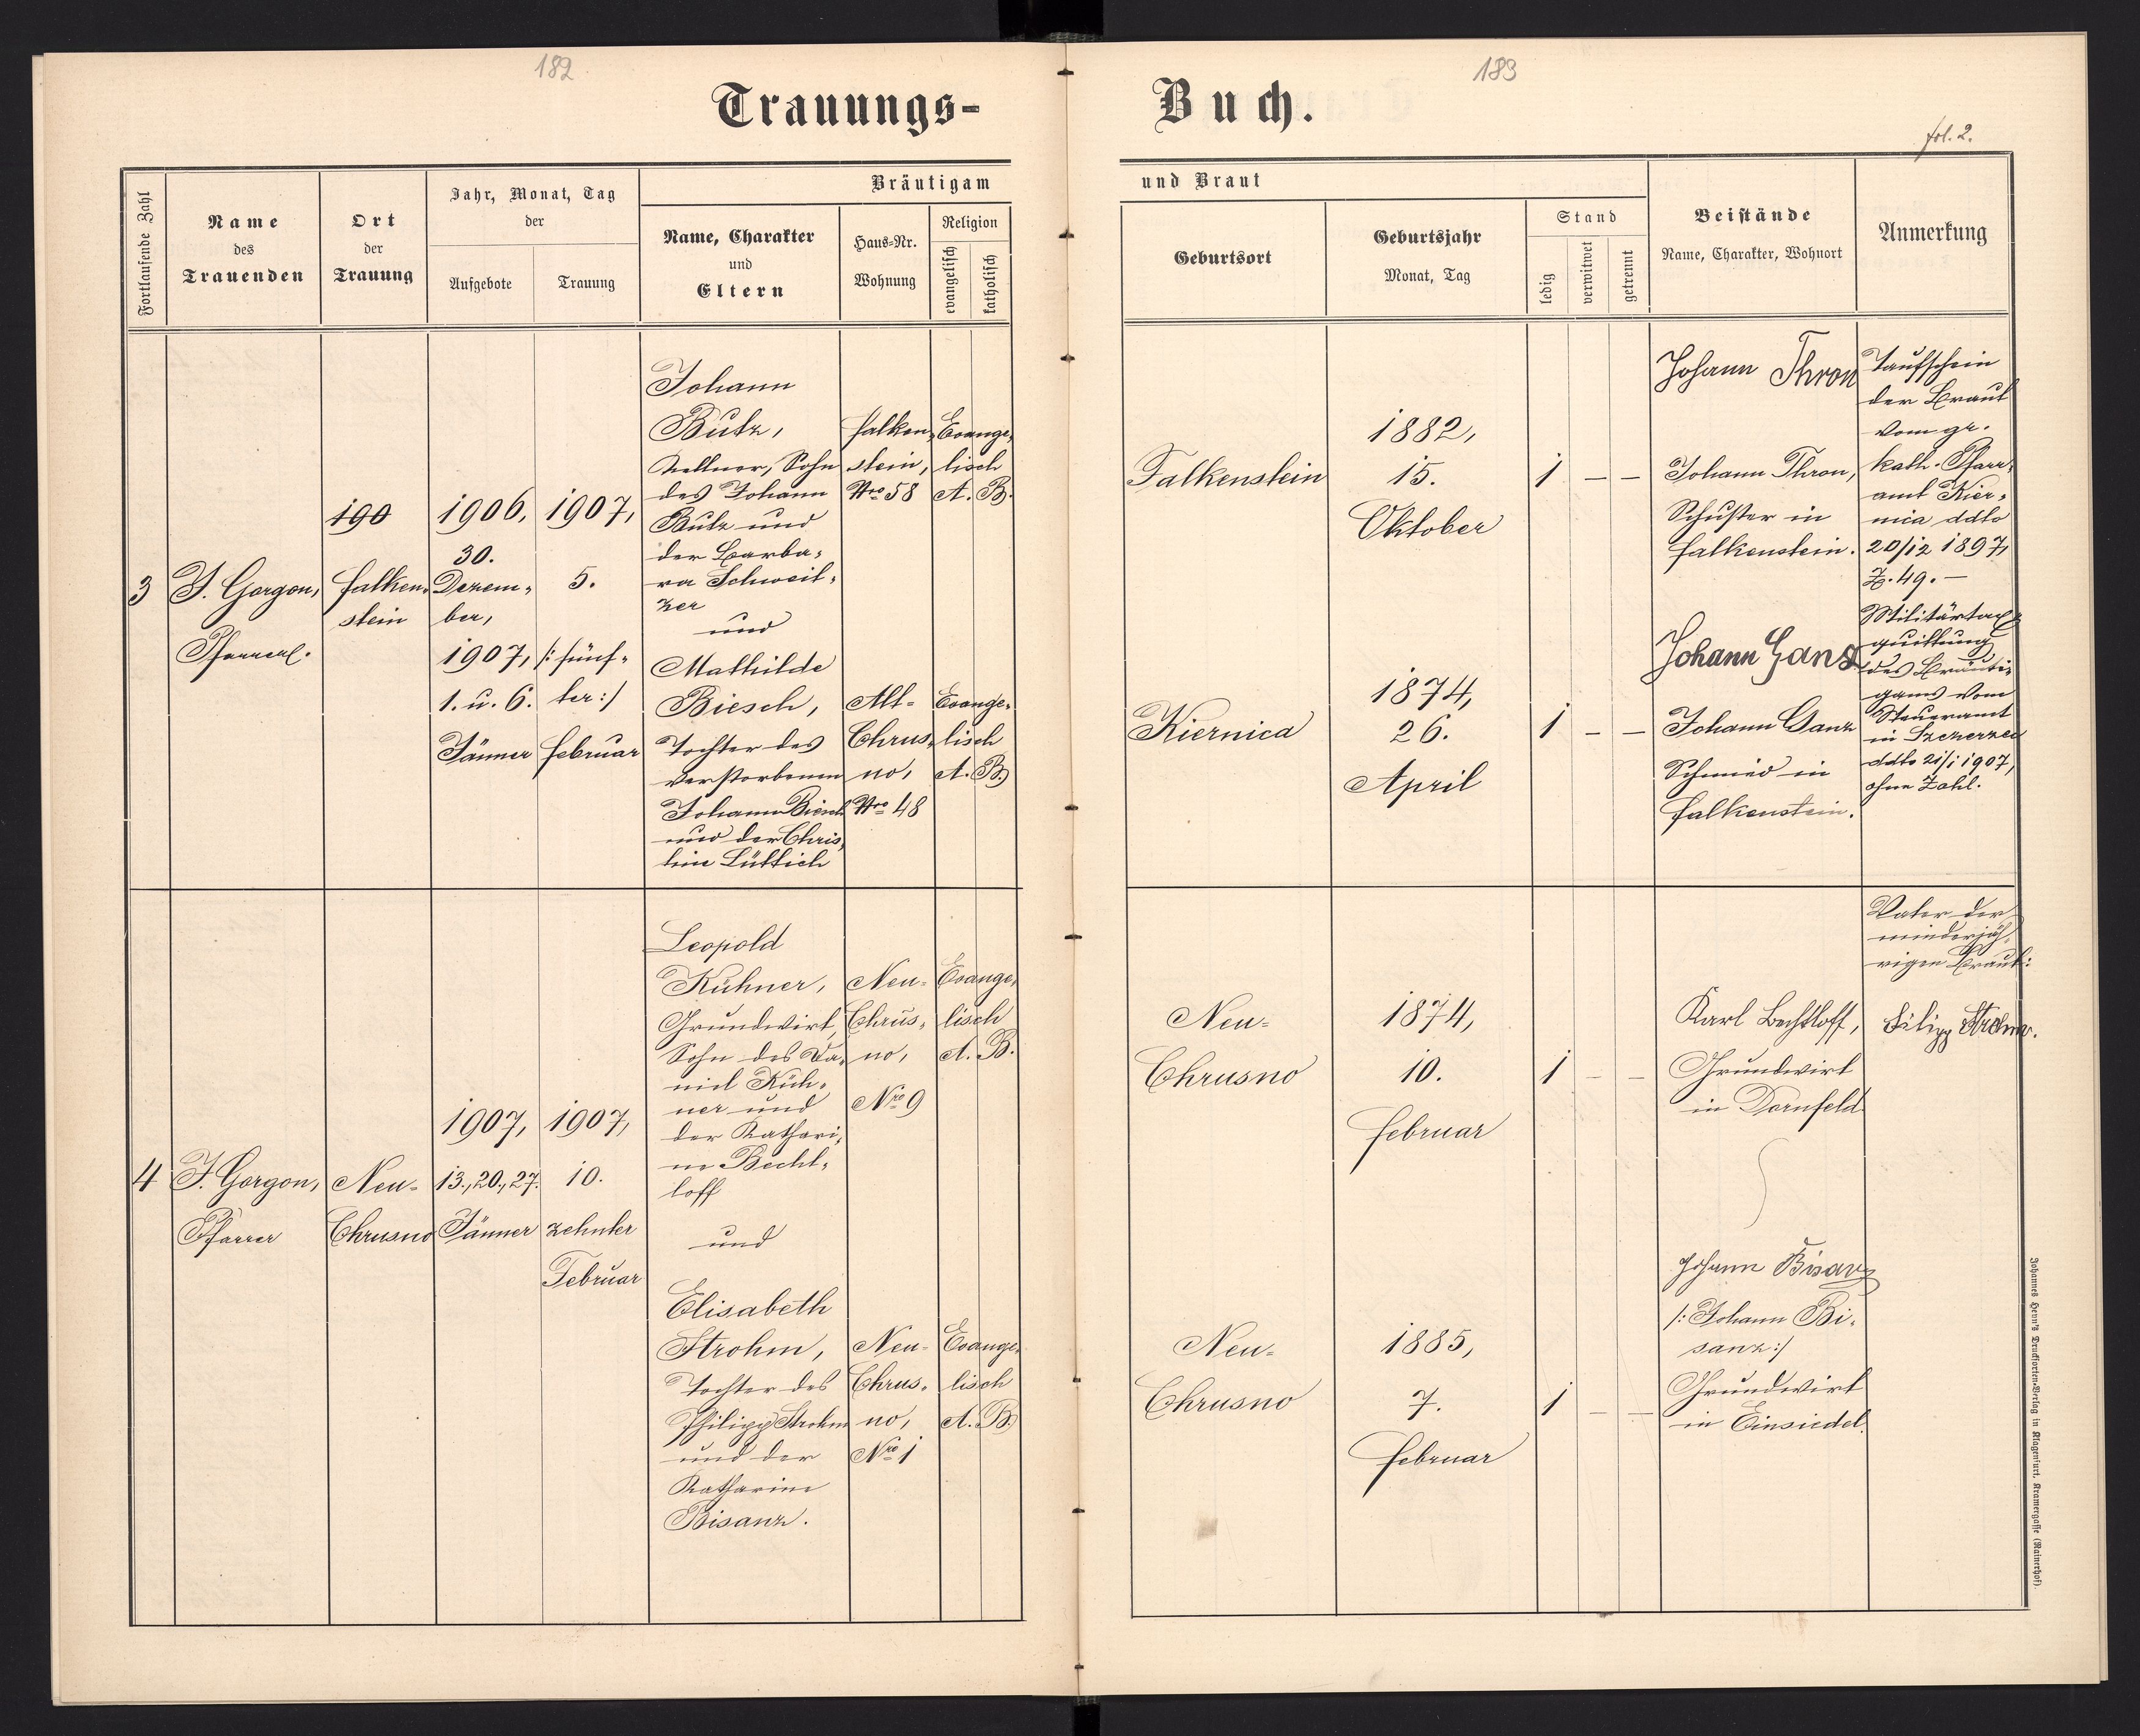 182
183
Trauungs-
Buch.
fol. 2.
Fortlaufende Zahl
Name
des
Trauenden
Ort
der
Trauung
Jahr, Monat, Tag
der
Aufgebote
Trauung
Bräutigam
Name, Charakter
und
Eltern
Haus-Nr.
Wohnung
Religion
evangelisch
katholisch
und Braut
Geburtsort
Geburtsjahr
Monat, Tag
Stand
ledig
verwitwet
getrennt
Beistände
Name, Charakter, Wohnort
Anmerkung
3
J. Gorgon,
190
Falken-
stein
1906,
30.
Dezem-
ber,
1907,
1. u. 6.
Jänner
1907,
5.
/: fünf-
ter :/
Februar
Johann
Butz,
Kellner, Sohn
des Johann
Butz und
der Barba-
ra Schweit-
zer
und
Mathilde
Biesch,
Tochter des
verstorbenen
Johann Biesch
und der Chris-
tine Lüttich
Falken-
stein,
Nro 58
Alt-
Chrus-
no,
Nro 48
Evange-
lisch
A. B.
Evange-
lisch
A. B.
Falkenstein
Kiernica
1882,
15.
Oktober
1874,
26.
April
1 – –
1 – –
Johann Thron
Johann Thron,
Schuster in
Falkenstein.
Johann Ganz
Johann Ganz
Schmied in
Falkenstein.
Taufschein
der Braut
vom gr.
kath. Pfarr-
amt Kier-
nica ddto
20/12 1897,
Z. 49. –
Militärtax-
quittung
des Bräuti-
gams vom
Steueramt
in Szczerzec
ddto 21/1 1907,
ohne Zahl.
4
J. Gorgon,
Pfarrer
Neu-
Chrusno
1907,
13., 20., 27.
Jänner
1907,
10.
zehnter
Februar
Leopold
Kühner,
Grundwirt,
Sohn des Da-
niel Küh-
ner und
der Kathari-
ne Becht-
loff
und
Elisabeth
Strohm,
Tochter des
Philipp Strohm
und der
Katharine
Bisanz.
Neu-
Chrus-
no,
Nro 9
Neu-
Chrus-
no,
Nro 1
Evange-
lisch
A. B.
Evange-
lisch
A. B.
Neu-
Chrusno
Neu-
Chrusno
1874,
10.
Februar
1885,
7.
Februar
1 – –
1 – –
Karl Bechtloff,
Grundwirt
in Dornfeld
Johann Bisanz
/: Johann Bi-
sanz :/
Grundwirt
in Einsiedel.
Vater der
minderjäh-
rigen Braut:
Filipp Strohm.
Johannes Heyn's Drucksorten-Verlag in Klagenfurt, Kramergasse (Rainerhof).